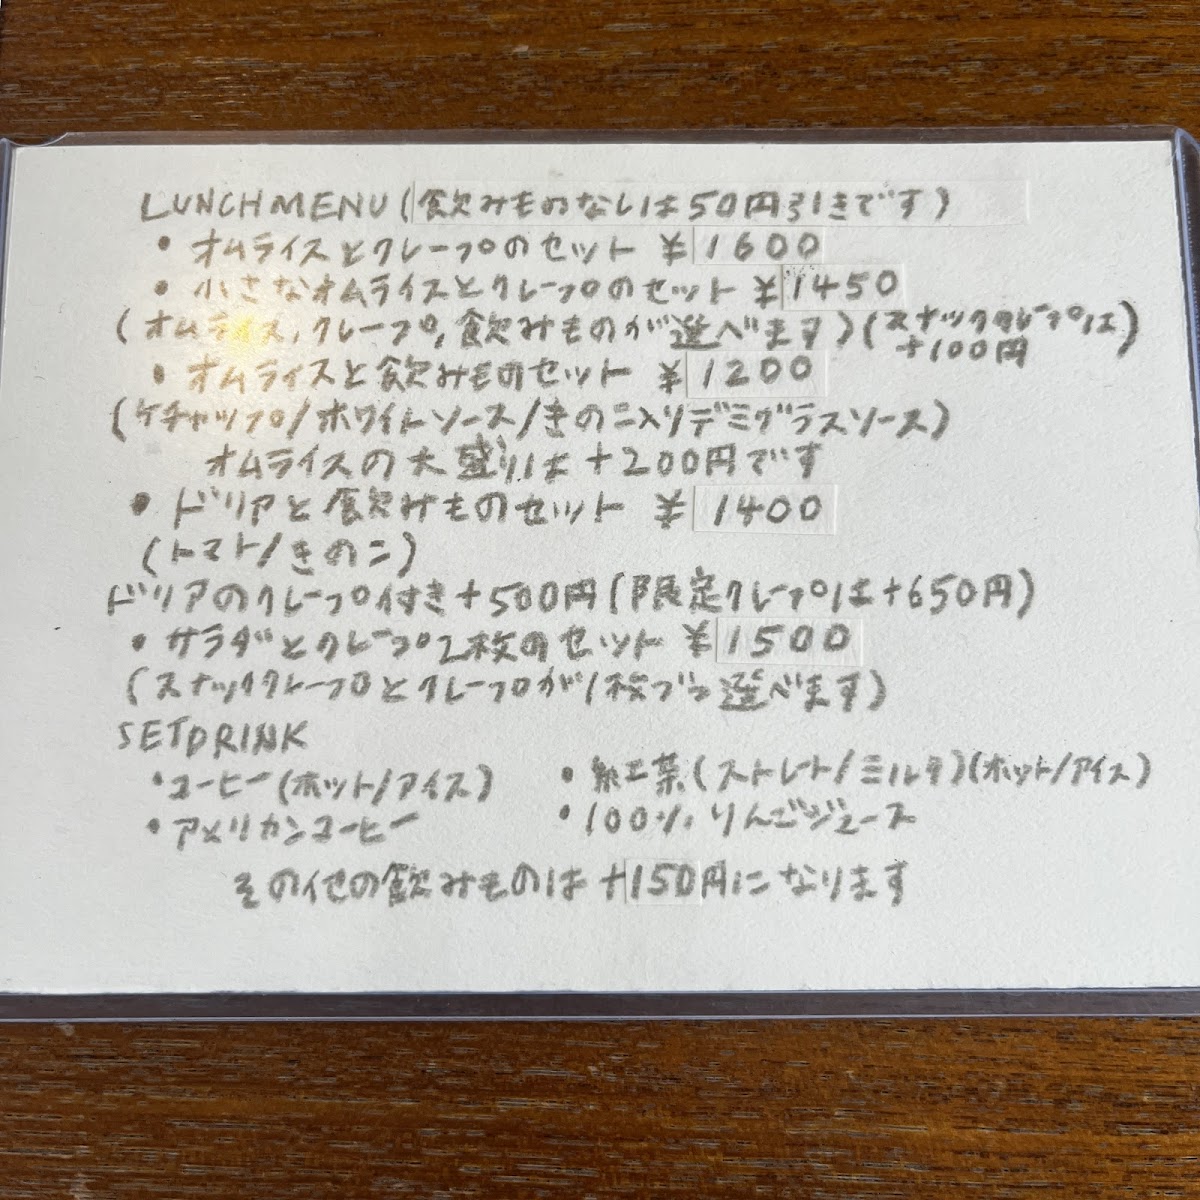 LUNCH MENU (飲みものなしは50円引きです)
・オムライスとクレープのセット ¥1600
・小さなオムライスとクレープのセット ¥1450
(オムライス,クレープ,飲みものが選べます)(スナッククレープは+100円)
・オムライスと飲みものセット ¥1200
(ケチャップ/ホワイトソース/きのこ入りデミグラスソース)
オムライスの大盛りは+200円です
・ドリアと飲みものセット ¥1400
(トマト/きのこ)
ドリアのクレープ付き+500円(限定クレープは+650円)
・サラダとクレープ2枚のセット ¥1500
(スナッククレープとクレープが1枚づつ選べます)
SET DRINK
・コーヒー(ホット/アイス) ・紅茶(ストレート/ミルク)(ホット/アイス)
・アメリカンコーヒー ・100%りんごジュース
その他の飲みものは+150円になります